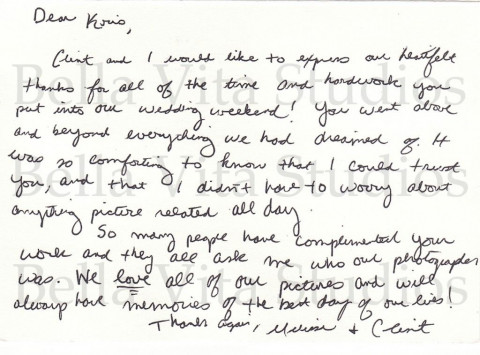 Dear Kris,
Clint and I would like to express our heartfelt
thanks for all of the time and hardwork you
put into our wedding weekend! You went above
and beyond everything we had dreamed of. It
was so comforting to know that I could trust
you, and that I didn't have to worry about
anything picture related all day.
So many people have complimented your
work and they all ask me who our photographer
was. We love all of our pictures and will
always have memories of the best day of our lives!
Thanks again, Melissa + Clint
Bella Vita Studios
Bella Vita Studios
Bella Vita Studios